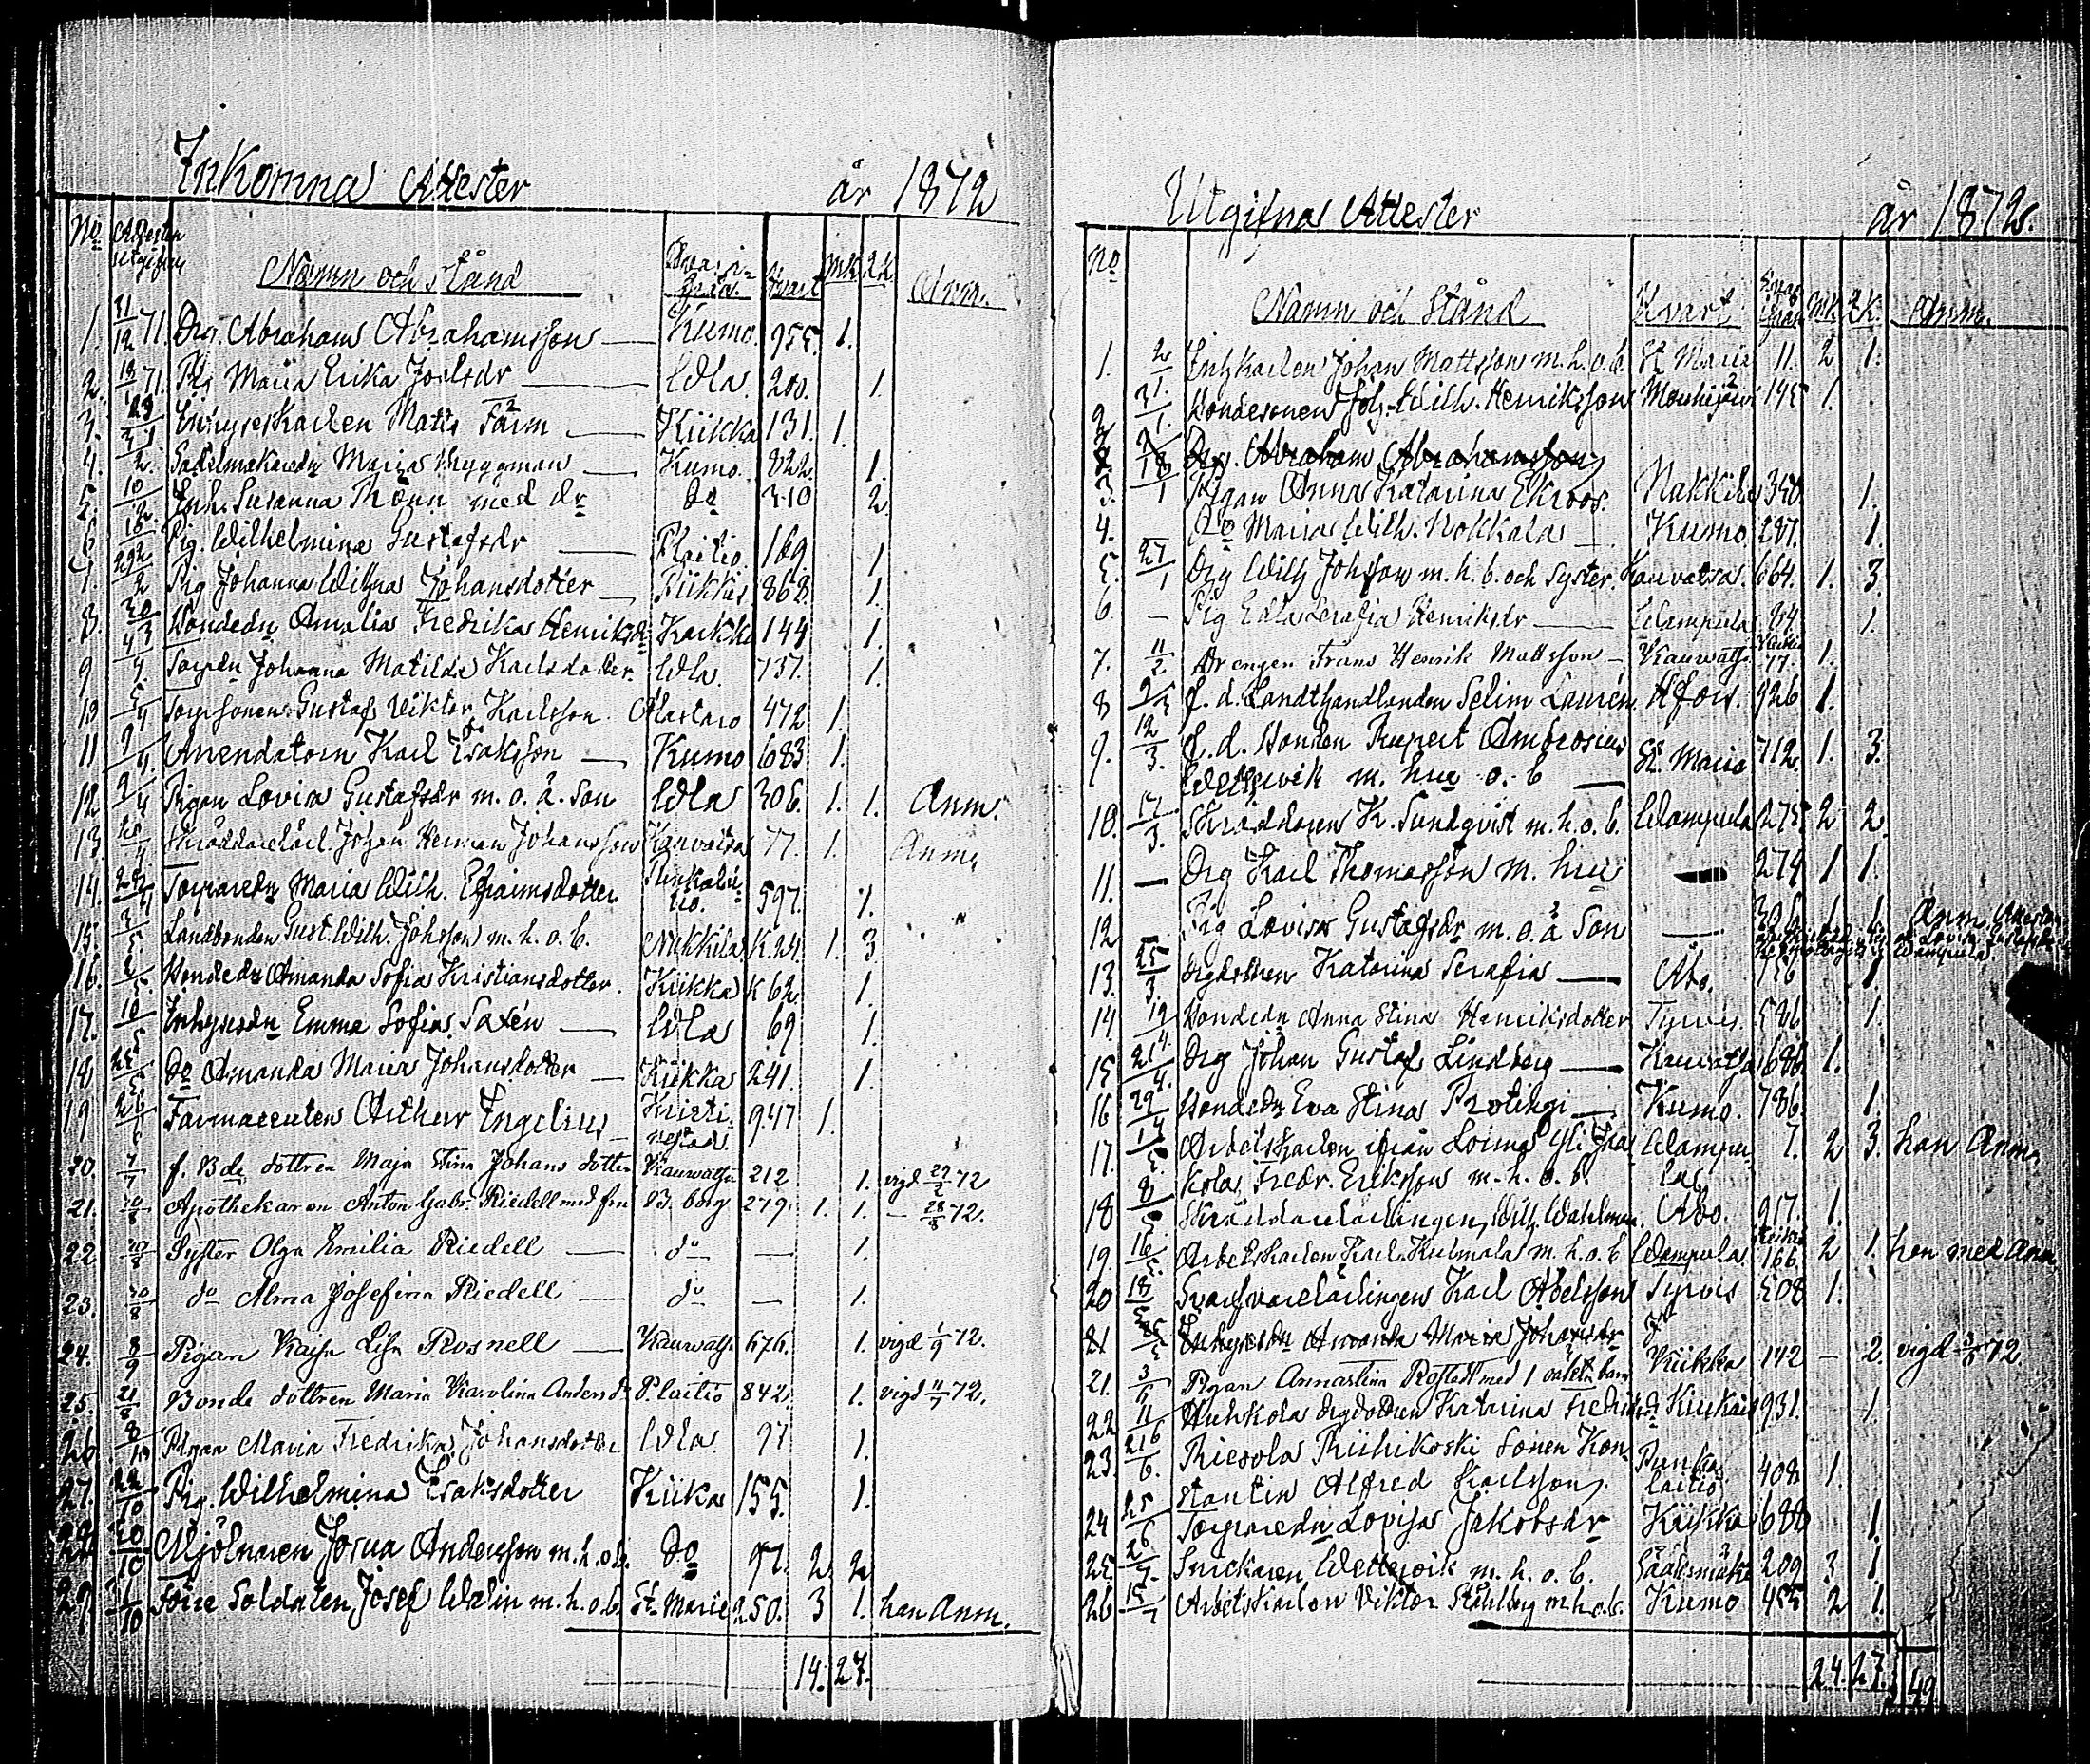 Inkomna Attester år 1872
No Attesten utgifven Namn och stånd Hvari- från. Hvart Mk. Qk. Anm.
1. 31/12 71. Drg. Abraham Abrahamsson — Kumo. 955. 1.
2. 71. Pig Maria Erika Joelsdr — Wla. 200. 1.
3. Inhyseskarlen Matts Färm — Kiikka 131. 1.
4. Sadelmakaredr Maria Bryggman — Kumo. 822. 1.
5. 10/2 Inh. Susanna Rönn med dr do 310 2.
6. Pig. Wilhelmina Gustafsdr — Plaitio. 169. 1.
7. Pig Johanna Wilhna Johansdotter — Kiikkis 868. 1.
8. Bondedn Amalia Fredrika Henriksdr Kiikka 144 1.
9 Torpdn Johanna Matilda Karlsdotter. Wla. 737. 1.
10 5/4 Torpsonen Gustaf Viktor Karlsson. Alastaro 472 1.
11 9/4 Arrendatorn Karl Isaksson — Kumo 683 1.
12 9/4 Pigan Lovisa Gustafsdr m. o. ä. Son Wla 306. 1. 1. Anm.
13. Skräddarelärl. Johan Herman Johansson Kauvatsa 77. 1. Anm.
14. Torparedn Maria Wilh. Efraimsdotter Punkalai- tio. 597. 1.
15. 3/5 Landbonden Gust. Wilh. Johsson m. h. o. b. Nakkila K. 24. 1. 3
16. Bondedn Amanda Sofia Kristiansdotter. Kiikka K 62. 1.
17. 10/5 Inhysesdn Emma Sofia Saxén — Wla 69 1.
18. 25/5 do Amanda Maria Johansdotter — Kiikka 241. 1.
19 26/6 Farmaceuten Arthur Engelius — Kristi- nestad. 947 1.
20. 7/7 f. Bde dottren Maja Stina Johans dotter Kauvatsa 212 1. vigd 29/2 72
21. 20/8 Apothekaren Anton Gabr. Riedell med fru B. borg 279. 1. 1. — 28/8 72.
22 20/8 Syster Olga Emilia Riedell — do — 1.
23. 20/8 do Alma Josefina Riedell — do — 1.
24. 8/9 Pigan Kajsa Lisa Rosnell — Kauvatsa 676. 1. vigd 1/9 72.
25. 21/8 Bonde dottren Maria Karolina Anders dr P. laitio 842. 1. vigd 11/7 72.
26 8/10 Pigan Maria Fredrika Johansdotter Wla. 97 1.
27. 22/10 Pig. Wilhelmina Isaksdotter Kiika 155. 1.
28. 20/10 Mjölnaren Josua Andersson m. h. o. b. do 97. 2 2
29. 1/10 förre Soldaten Josef Walin m. h. o. b. St. Marie 250. 3 1. han Anm.
14. 27.
Utgifna Attester år 1872.
No Namn och Stånd Hvart Hvar- ifrån Mk Qk. Anm.
1. Inhkarlen Johan Mattsson m. h. o. b. St. Marie 11. 2 1.
2 31/1. Bondesonen Joh. Wilh. Henriksson Mouhijärvi 145 1.
Drg. Abraham Abrahamsson
3. 18/1 Pigan Anna Katarina Ekroos. Nakkila 340. 1.
4. — Do Maria Wilh. Nokkala — Kumo. 287. 1.
5. 27/1 Drg Wilh Johsson m. h. b. och Syster. Kauvatsa. 664. 1. 3.
6. — Pig Edla Serafia Henriksdr — Wampula 84 1.
7. 11/2 Drengen Frans Henrik Mattsson — Kauvatsa 77. 1.
8 9/3 f. d. Landthandlanden Selim Laurén. Hfors. 926 1.
9. 12/3. f. d. Bonden Rupert Ambrosius
Wettervik m. hu o. b — St. Marie 712. 1. 3.
10. 17/3. Skräddaren K. Sundqvist m. h. o. b. Wampula 275. 2 2.
11. — Drg Karl Thomasson m. hu — 274 1 1.
12 Pig Lovisa Gustafsdr m. o. ä Son — 306 1 1. Anm. Attesten
13. 25/3. Drgdottren Katarina Serafia — Åbo. 756 1
14. Bondedn Anna Stina Henriksdotter Tyrvis. 586 1.
15 21/4. Drg Johan Gustaf Lindberg — Kauvatsa 686 1.
16 29/4 Bondedn Eva Stina — Kumo. 786. 1.
17. Arbetskarlen ifrån Loima Yli
kola Fredr. Eriksson m. h. o. b. Wampu- la 7. 2 3. han Anm.
18 8/5 Skräddarelärlingen Wilh. Wahlman. Åbo. 917. 1.
19. 16/5. Arbetskarlen Karl Kulmala m. h. o. b Wampula. 166 2 1. han med Anm.
20 18/5 Svarfvarelärlingen Karl Abelsson Tyrvis 508 1.
21 Inhysesdn Amanda Maria Johansdr
21. 3/6 Pigan Annastina Rostedt med 1 oäkta barn Kiikka 142 — 2. vigd 72
22 11/6 Huhkola drgdottren Katarina Fredriksdr Kiukais 931. 1.
23. 21/6 Riesola Riihikoski Sonen Kon-
stantin Alfred Karlsson. Punka- laitio 408. 1.
24 25/6 Torparedn Lovisa Jakobsdr Kiikka 688 1.
25. 26/7. Snickaren Wettervik m. h. o. b. Sääksmäki 209 3 1.
26 15/7 Arbetskarlen Viktor Ståhlberg m. h. o. b. Kumo 455 2 1.
24. 27. 49